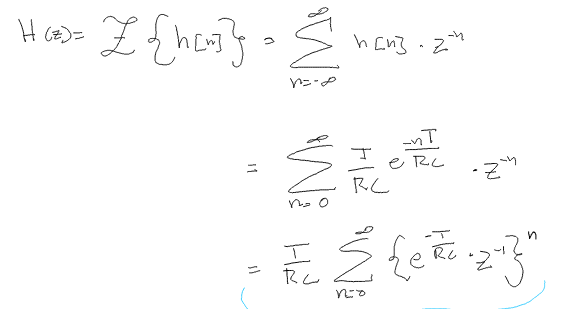 H(z) = Z{h[n]} = ∑_{n=-∞}^{∞} h[n] · z^{-n}
= ∑_{n=0}^{∞} T/RC e^{-nT/RC} · z^{-n}
= T/RC ∑_{n=0}^{∞} {e^{-T/RC} · z^{-1}}^n